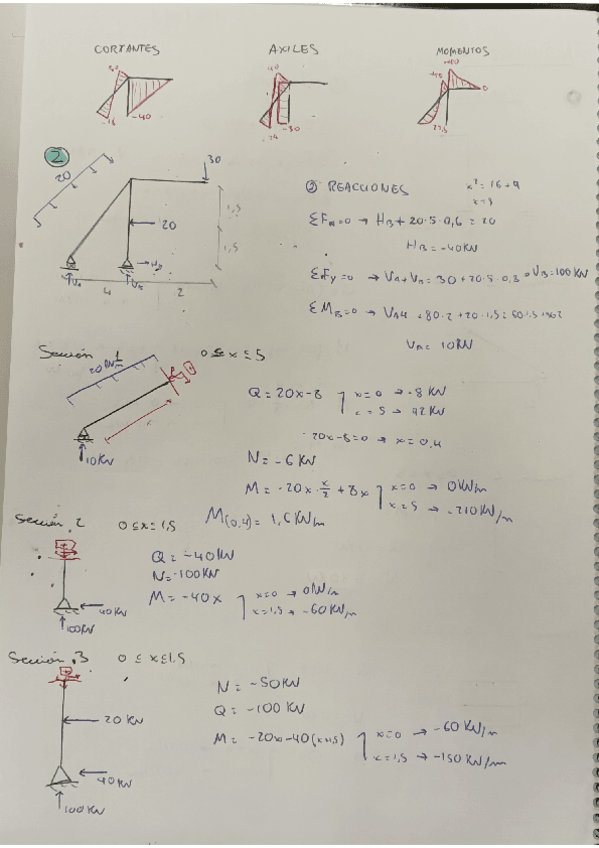 CORTANTES AXILES MOMENTOS
-40
-30
0
②
20
30
20
1,5
1,5
4 2
② REACCIONES
x² = 16+9
ΣFH=0 → HB + 20·5·0,6 = 20
HB = -40KN
ΣFy=0 → VA+VB = 30+20·5·0,8 → VB=100KN
ΣMB=0 → VA4 + 80·2 + 20·1,5 =
VA = 10KN
Sección 1 0 ≤ x ≤ 5
x
10KN
Q = 20x-8
x=0 → -8 KN
x=5 → 92KN
20x-8=0 → x=0,4
N = -6 KN
M = -20x·x/2 + 8x
x=0 → 0KN/m
x=5 → -210KN/m
M(0,4) = 1,6KN/m
Sección 2 0≤x≤1,5
40KN
100KN
Q = -40KN
N = -100KN
M = -40x
x=0 →
x=1,5 → -60KN/m
Sección 3 0 ≤ x ≤ 1,5
20 KN
40KN
100KN
N = -50KN
Q = -100 KN
M = -20x-40(x+1,5)
x=0 → -60 KN/m
x=1,5 → -150KN/m